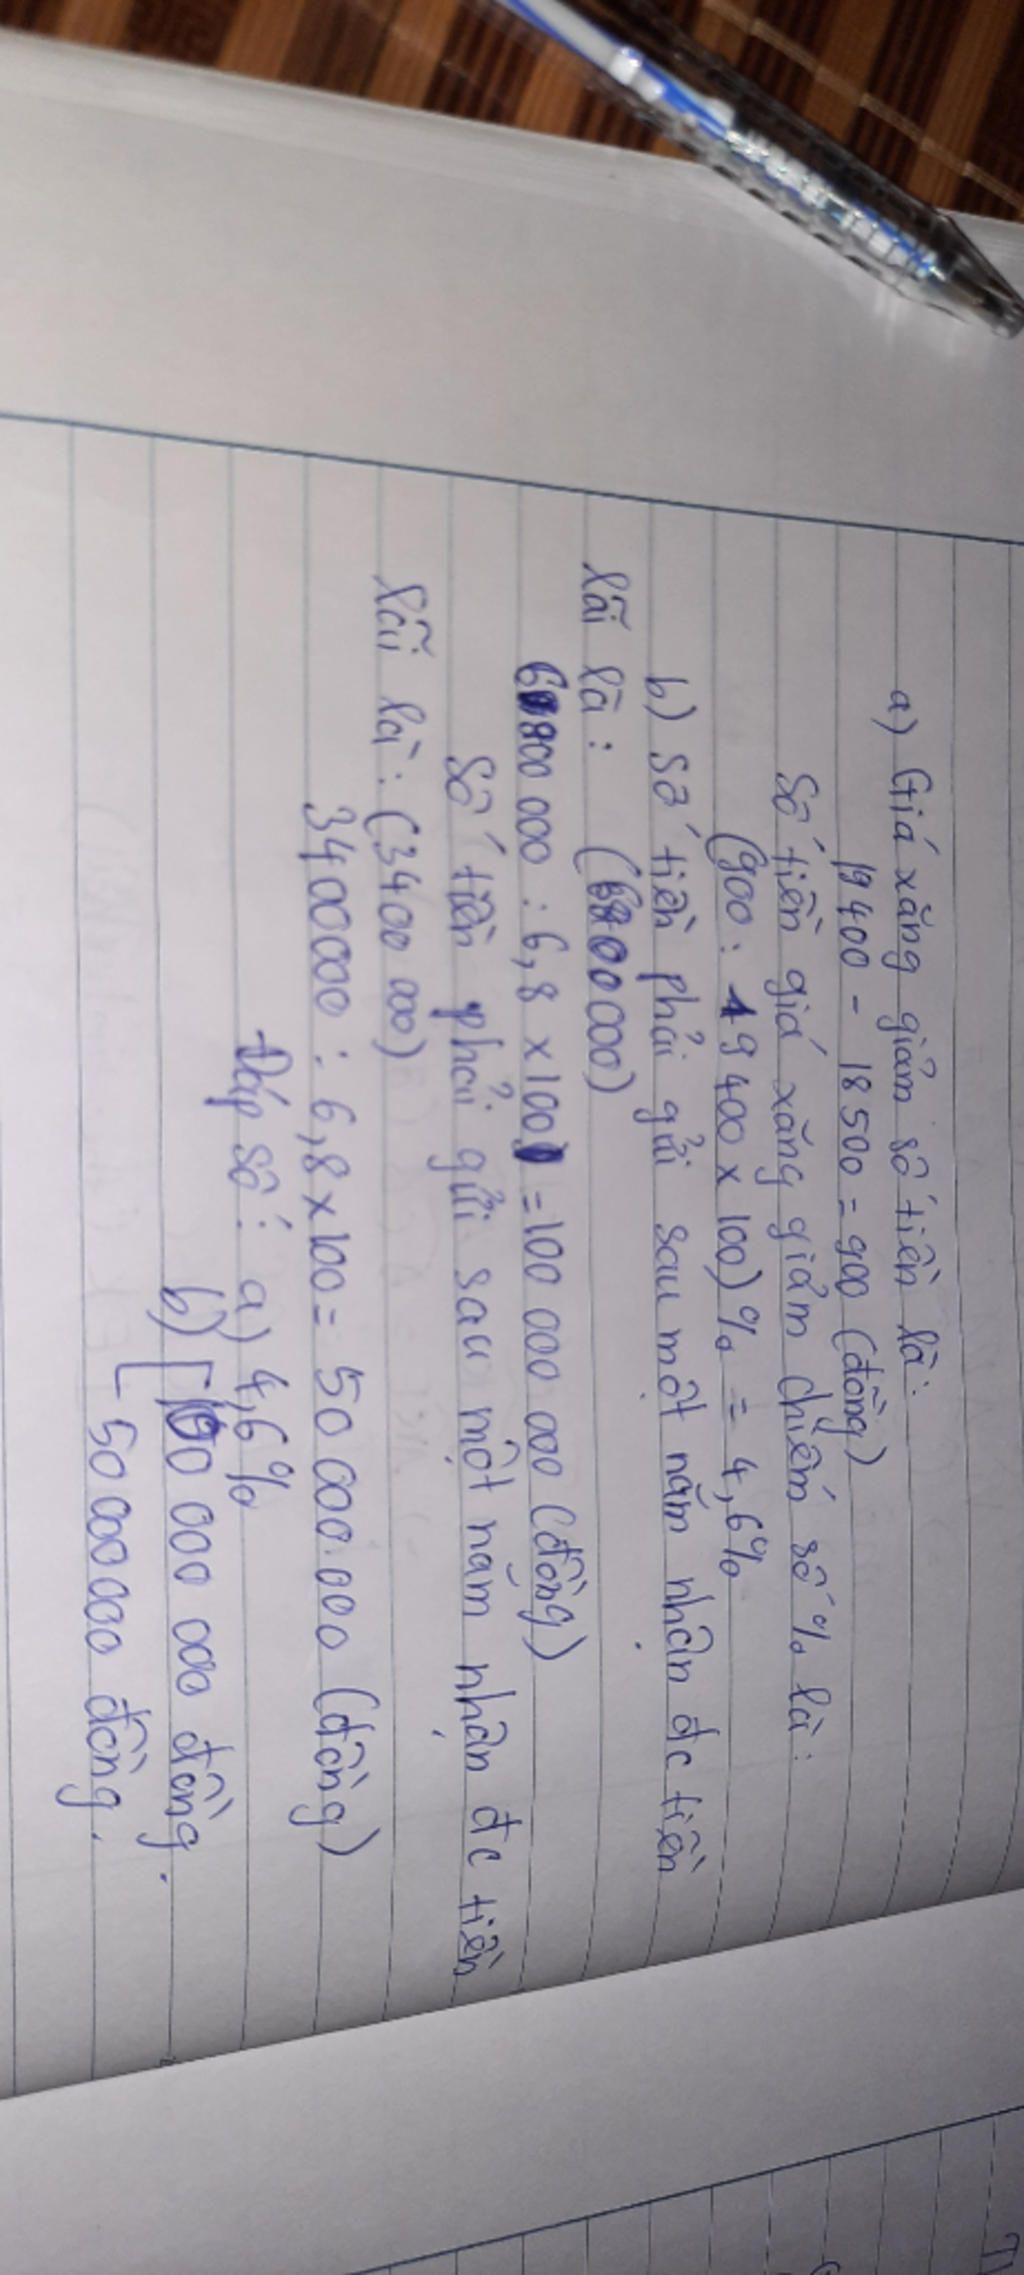 a) Giá xăng giảm số tiền là:
19 400 - 18 500 = 900 (đồng)
Số tiền giá xăng giảm chiếm số % là:
(900 : 19 400 x 100) % = 4,6%
b) Số tiền phải gửi sau một năm nhận đc tiền
lãi là: (6800000)
6800 000 : 6,8 x 100 = 100 000 000 (đồng)
Số tiền phải gửi sau một năm nhận đc tiền
lãi là: (3400 000)
3400000 : 6,8 x 100 = 50 000.000 (đồng)
Đáp số: a) 4,6%
b) 100 000 000 đồng.
50 000000 đồng.